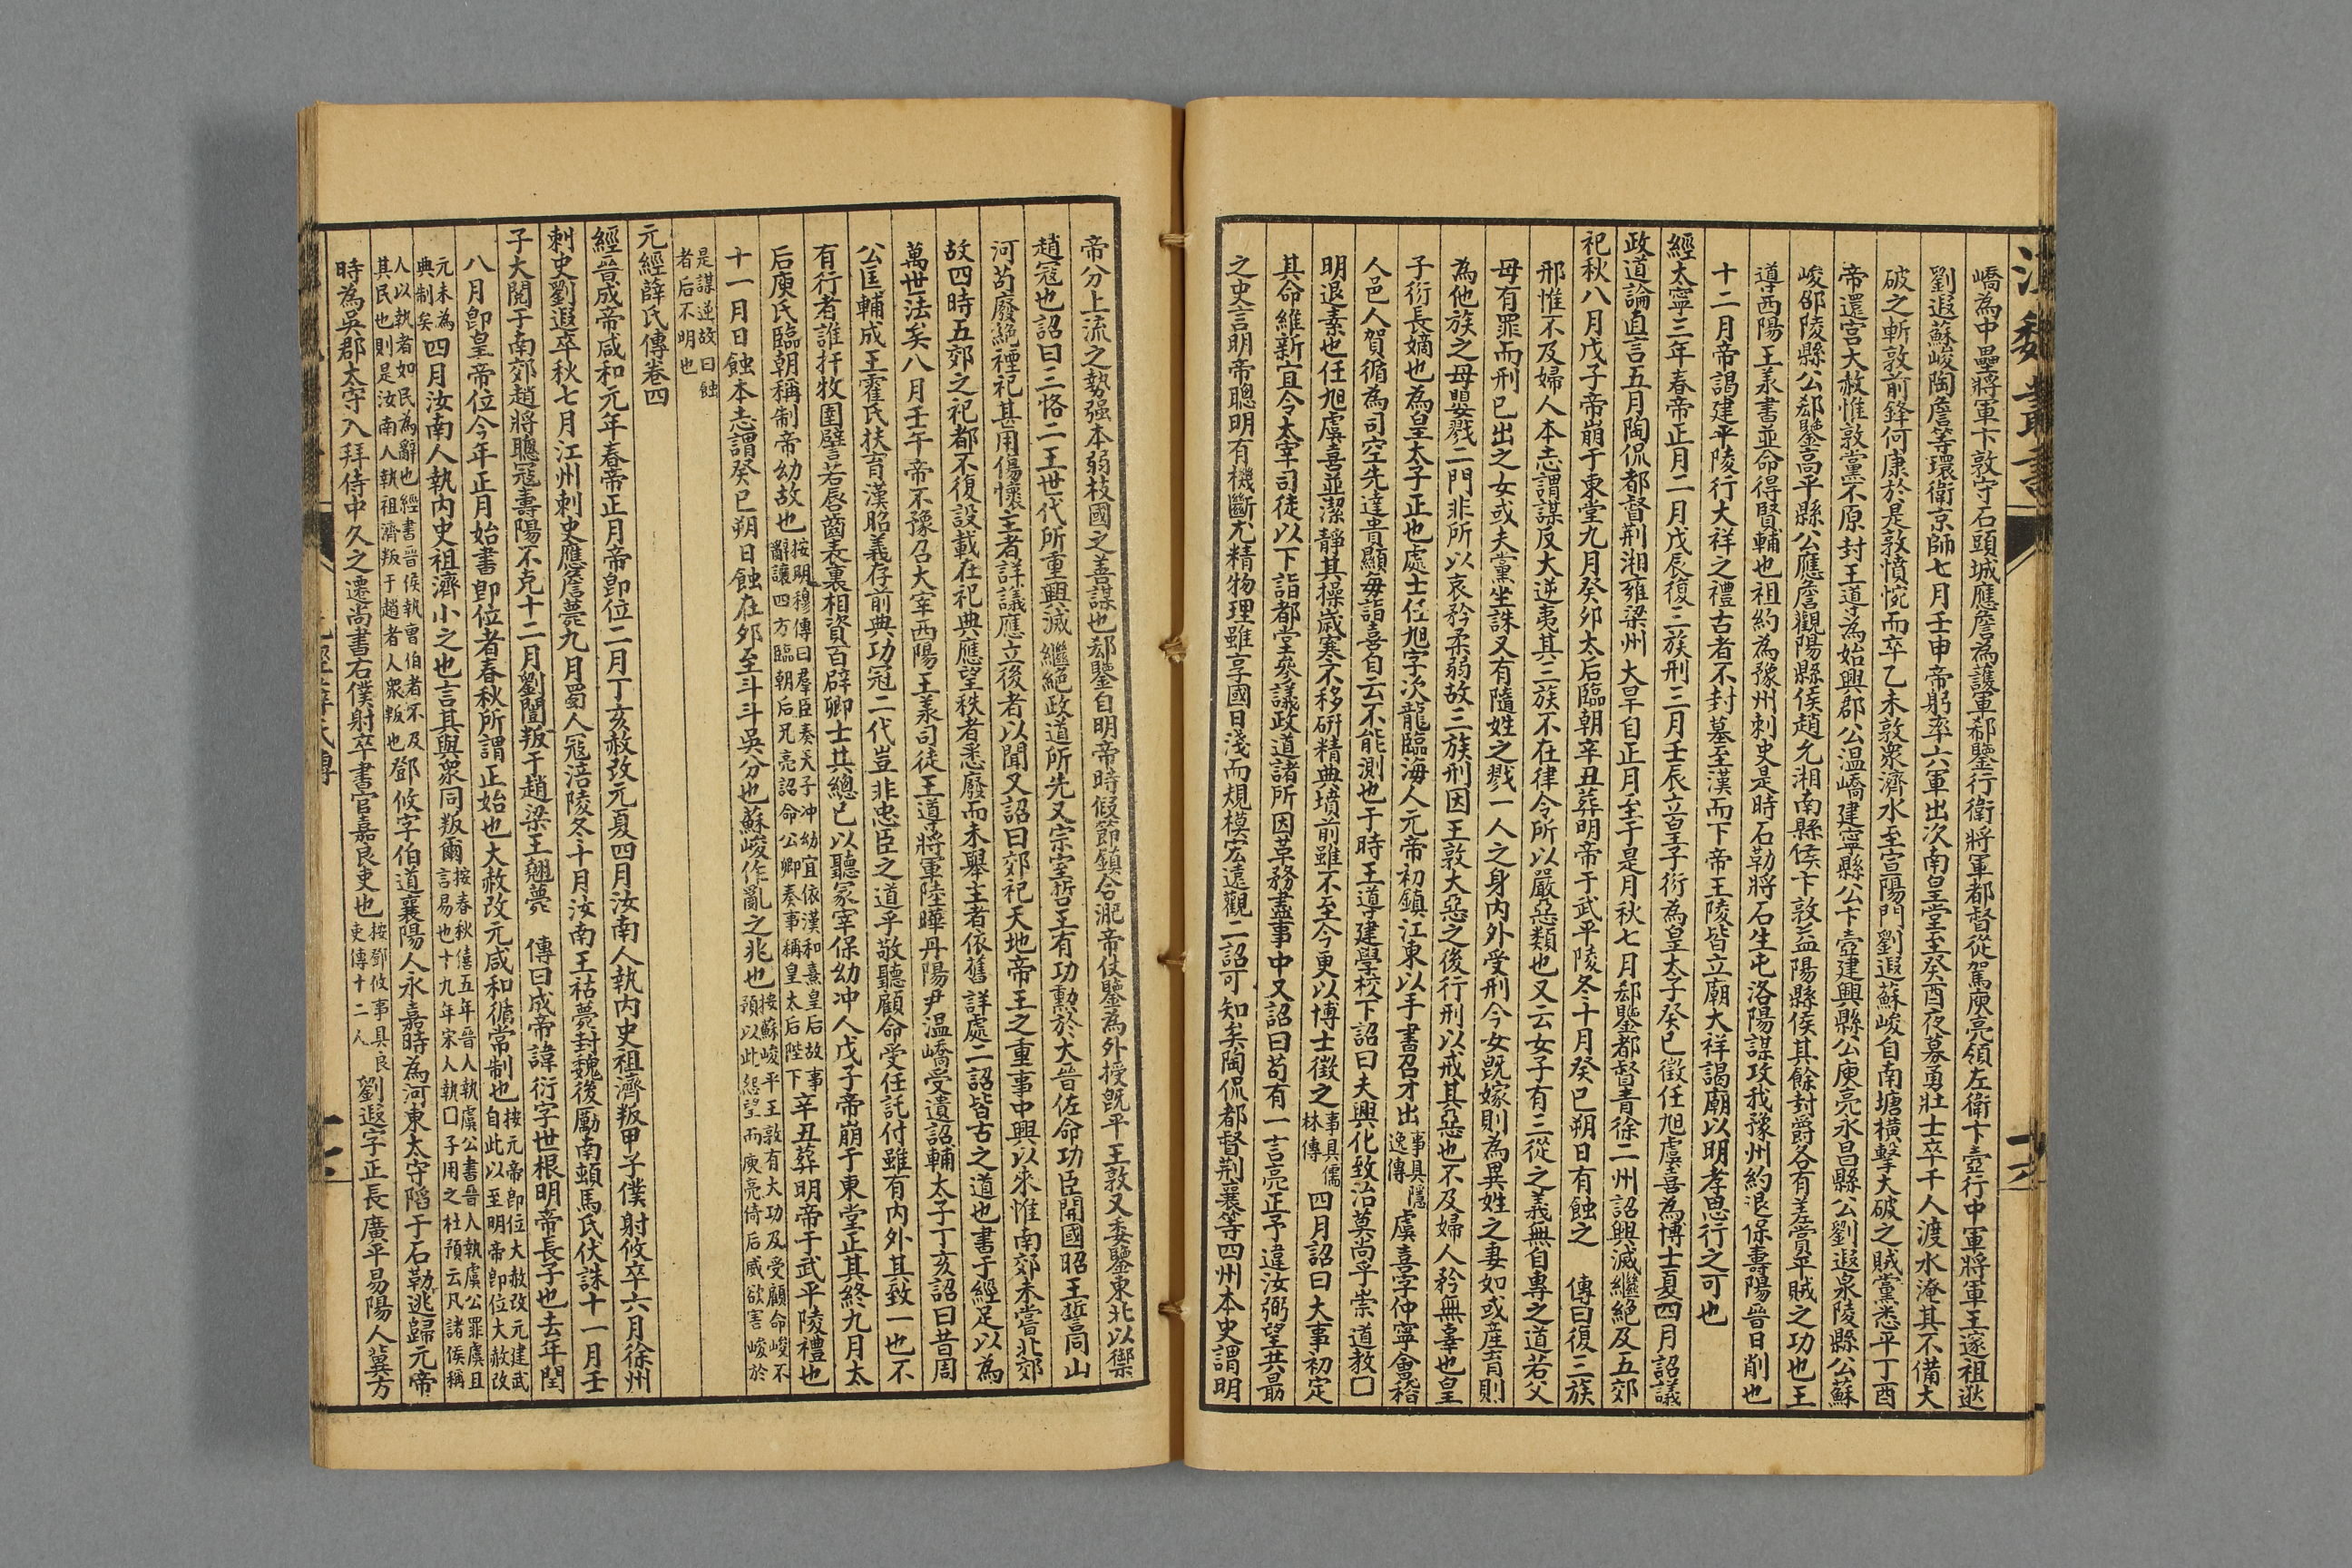 嶠為中壘將軍卞敦守石頭城應詹為護軍郗鑒行衛將軍都督從駕庾亮領左衛卞壼行中軍將軍王邃祖逖
劉遐蘇峻陶詹等環衛京師七月壬申帝躬率六軍出次南皇堂至癸酉夜募勇壯士卒千人渡水淹其不備大
破之斬敦前鋒何康於是敦憤惋而卒乙未敦衆濟水至宣陽門劉遐蘇峻自南塘橫擊大破之賊黨悉平丁酉
帝還宮大赦惟敦黨不原封王道為始興郡公温嶠建寧縣公卞壼建興縣公庾亮永昌縣公劉遐泉陵縣公蘇
峻邵陵縣公郗鑒高平縣公應詹觀陽縣侯趙允湘南縣侯卞敦益陽縣侯其餘封爵各有差賞平賊之功也王
導西陽王羕書並命得賢輔也祖約為豫州刺史是時石勒將石生屯洛陽謀攻我豫州約退保壽陽晉日削也
十二月帝謁建平陵行大祥之禮古者不封墓至漢而下帝王陵皆立廟大祥謁廟以明孝思行之可也
經太寧三年春帝正月二月戊辰復三族刑三月壬辰立皇子衍為皇太子癸巳徵任旭虞喜為博士夏四月詔議
政道論直言五月陶侃都督荆湘雍梁州大旱自正月至于是月秋七月郗鑒都督青徐二州詔興滅繼絶及五郊
祀秋八月戊子帝崩于東堂九月癸卯太后臨朝辛丑葬明帝于武平陵冬十月癸巳朔日有蝕之　傳曰復三族
刑惟不及婦人本志謂謀反大逆夷其三族不在律令所以嚴惡類也又云女子有三從之義無自專之道若父
母有罪而刑已出之女或夫黨坐誅又有隨姓之戮一人之身内外受刑今女既嫁則為異姓之妻如或產育則
為他族之母嬰戮二門非所以哀矜柔弱故三族刑因王敦大惡之後行刑以戒其惡也不及婦人矜無辜也皇
子衍長嫡也為皇太子正也處士任旭字次龍臨海人元帝初鎮江東以手書召才出事具隱逸傳虞喜字仲寧會稽
人邑人賀循為司空先達貴顯每詣喜自云不能測也于時王導建學校下詔曰夫興化致治莫尚乎崇道敎□
明退素也任旭虞喜並潔靜其操歲寒不移研精典墳前雖不至今更以博士徵之事具儒林傳四月詔曰大事初定
其命維新宜令太宰司徒以下詣都堂叅議政道諸所因革務盡事中又詔曰苟有一言亮正予違汝弼望共最
之史言明帝聰明有機斷尤精物理雖享國日淺而規模宏遠觀二詔可知矣陶侃都督荆襄等四州本史謂明
帝分上流之勢强本弱枝國之善謀也郗鑒自明帝時假節鎮合淝帝仗鑒為外授既平王敦又委鑒東北以禦
趙寇也詔曰三恪二王世代所重興滅繼絶政道所先又宗室哲王有功勳於大晉佐命功臣開國昭王誓同山
河苟廢絶禋祀甚用傷懷主者詳議應立後者以聞又詔曰郊祀天地帝王之重事中興以來惟南郊未嘗北郊
故四時五郊之祀都不復設載在祀典應望秩者悉廢而未舉主者依舊詳處二詔皆古之道也書于經足以為
萬世法矣八月壬午帝不豫召大宰西陽王羕司徒王導將軍陸曄丹陽尹温嶠受遺詔輔太子丁亥詔曰昔周
公匡輔成王霍氏扶育漢昭義存前典功冠二代豈非忠臣之道乎敬聽顧命受任託付雖有内外其致一也不
有行者誰扞牧圉譬若唇齒表裏相資百辟卿士其總已以聽冢宰保幼冲人戊子帝崩于東堂正其終九月太
后庾氏臨朝稱制帝幼故也按明穆傳曰羣臣奏天子冲幼宜依漢和熹皇后故事辭讓四方臨朝后兄亮詔命公卿奏事稱皇太后陛下辛丑葬明帝于武平陵禮也
十一月日蝕本志謂癸巳朔日蝕在夘至斗斗吳分也蘇峻作亂之兆也按蘇峻平王敦有大功及受顧命峻不預以此怨望而庾亮倚后威欲害峻於
是謀逆故曰蝕者后不明也
元經薛氏傳卷四
經晉成帝咸和元年春帝正月帝卽位二月丁亥赦改元夏四月汝南人執内史祖濟叛甲子僕射攸卒六月徐州
刺史劉遐卒秋七月江州刺史應詹薨九月蜀人寇涪陵冬十月汝南王祐薨封魏後勵南頓馬氏伏誅十一月壬
子大閱于南郊趙將聰寇壽陽不克十二月劉闓叛于趙梁王翹薨　傳曰成帝諱衍字世根明帝長子也去年閏
八月卽皇帝位今年正月始書卽位者春秋所謂正始也大赦改元咸和循常制也按元帝卽位大赦改元建武自此以至明帝卽位大赦改
元未為典制矣四月汝南人執内史祖濟小之也言其與衆同叛爾按春秋僖五年晉人執虞公書晉人執虞公罪虞且言易也十九年宋人執□子用之杜預云凡諸侯稱
人以執者如民為辭也經書晉侯執曹伯者不及其民也則是汝南人執祖濟叛于趙者人衆叛也鄧攸字伯道襄陽人永嘉時為河東太守陷于石勒逃歸元帝
時為吳郡太守入拜侍中久之遷尚書右僕射卒書官嘉良吏也按鄧攸事具良吏傳十二人劉遐字正長廣平易陽人冀方